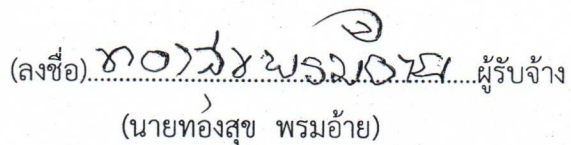 (ลงชื่อ)..........ทองสุข พรมอ้าย..........ผู้รับจ้าง
(นายทองสุข พรมอ้าย)